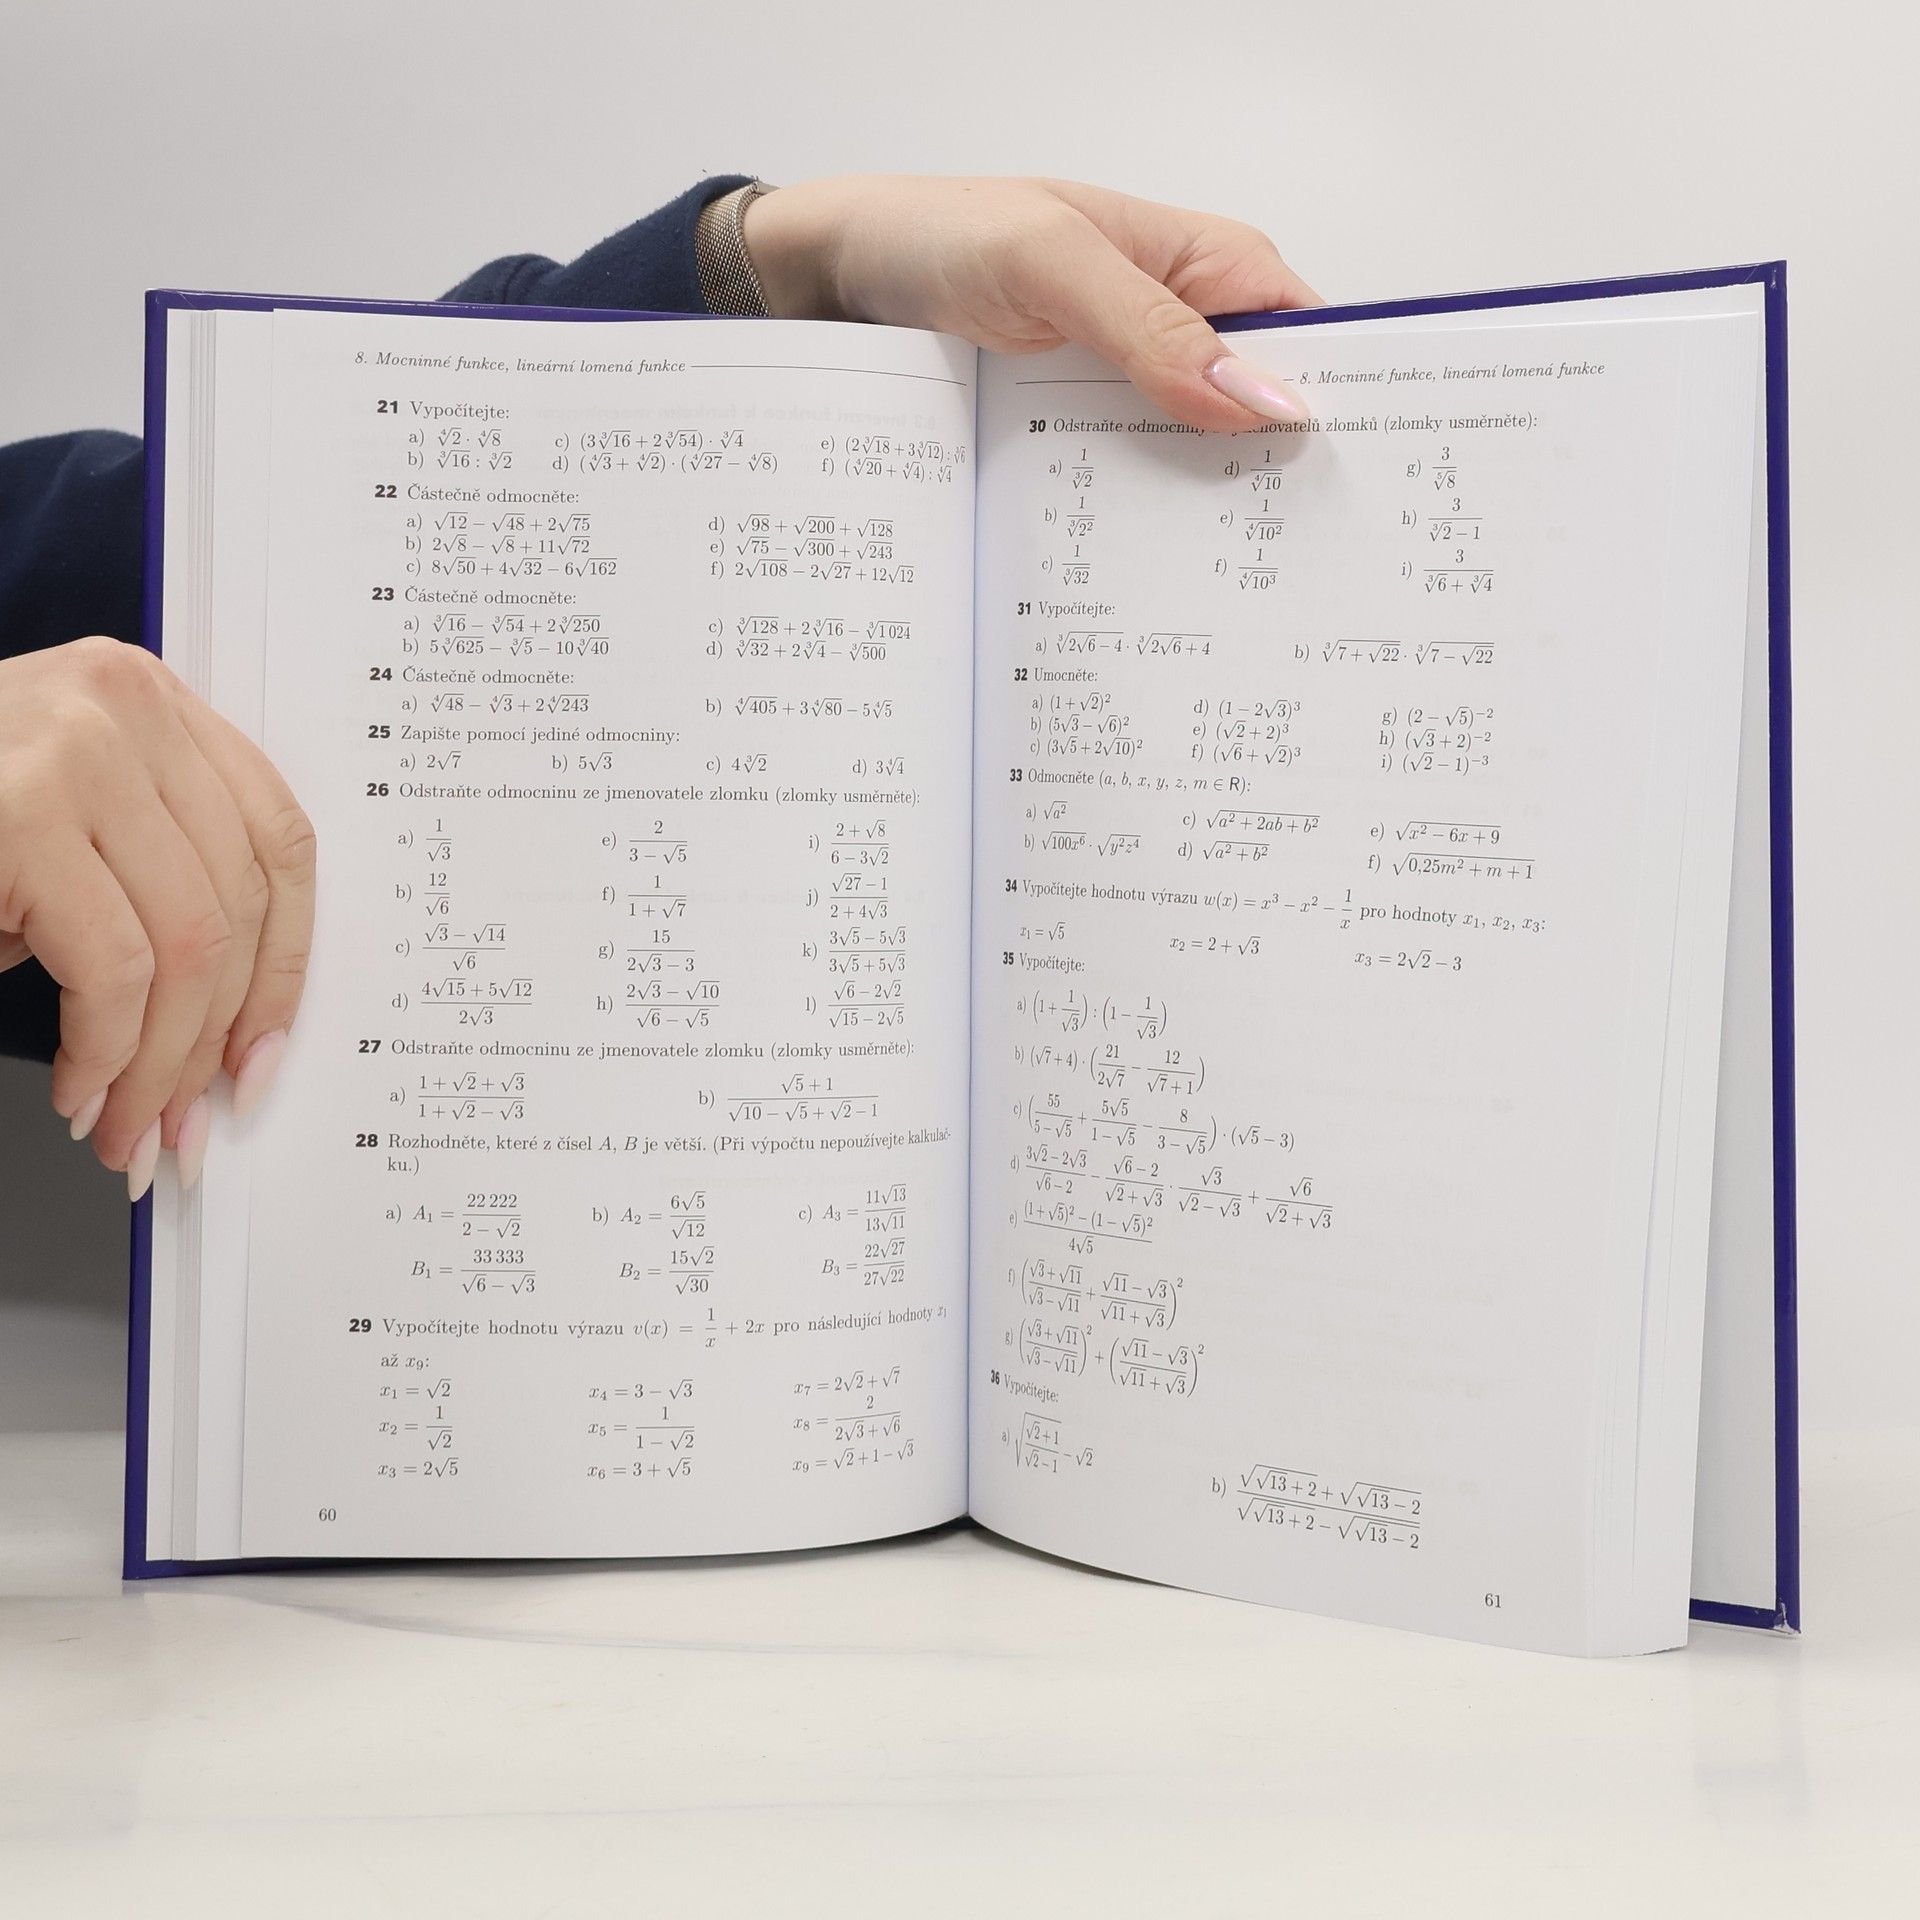 8. Mocninné funkce, lineární lomená funkce
21 Vypočítejte:
a) ∜2 · ∜8 c) (3∛16 + 2∛54) · ∛4 e) (2∛18 + 3∛12) : ∛6
b) ∛16 : ∛2 d) (∜3 + ∜2) · (∜27 − ∜8) f) (∜20 + ∜4) : ∜4
22 Částečně odmocněte:
a) √12 − √48 + 2√75 d) √98 + √200 + √128
b) 2√8 − √8 + 11√72 e) √75 − √300 + √243
c) 8√50 + 4√32 − 6√162 f) 2√108 − 2√27 + 12√12
23 Částečně odmocněte:
a) ∛16 − ∛54 + 2∛250 c) ∛128 + 2∛16 − ∛1 024
b) 5∛625 − ∛5 − 10∛40 d) ∛32 + 2∛4 − ∛500
24 Částečně odmocněte:
a) ∜48 − ∜3 + 2∜243 b) ∜405 + 3∜80 − 5∜5
25 Zapište pomocí jediné odmocniny:
a) 2√7 b) 5√3 c) 4∛2 d) 3∜4
26 Odstraňte odmocninu ze jmenovatele zlomku (zlomky usměrněte):
a) 1/√3 e) 2/(3 − √5) i) (2 + √8)/(6 − 3√2)
b) 12/√6 f) 1/(1 + √7) j) (√27 − 1)/(2 + 4√3)
c) (√3 − √14)/√6 g) 15/(2√3 − 3) k) (3√5 − 5√3)/(3√5 + 5√3)
d) (4√15 + 5√12)/(2√3) h) (2√3 − √10)/(√6 − √5) l) (√6 − 2√2)/(√15 − 2√5)
27 Odstraňte odmocninu ze jmenovatele zlomku (zlomky usměrněte):
a) (1 + √2 + √3)/(1 + √2 − √3) b) (√5 + 1)/(√10 − √5 + √2 − 1)
28 Rozhodněte, které z čísel A, B je větší. (Při výpočtu nepoužívejte kalkulač-
ku.)
a) A₁ = 22 222/(2 − √2) b) A₂ = 6√5/√12 c) A₃ = 11√13/13√11
B₁ = 33 333/(√6 − √3) B₂ = 15√2/√30 B₃ = 22√27/27√22
29 Vypočítejte hodnotu výrazu v(x) = 1/x + 2x pro následující hodnoty x₁
až x₉:
x₁ = √2 x₄ = 3 − √3 x₇ = 2√2 + √7
x₂ = 1/√2 x₅ = 1/(1 − √2) x₈ = 2/(2√3 + √6)
x₃ = 2√5 x₆ = 3 + √5 x₉ = √2 + 1 − √3
60
8. Mocninné funkce, lineární lomená funkce
30 Odstraňte zlomků (zlomky usměrněte):
a) 1/∛2 d) 1/∜10 g) 3/⁵√8
b) 1/∛2² e) 1/∜10² h) 3/(∛2 − 1)
c) 1/∛32 f) 1/∜10³ i) 3/(∛6 + ∛4)
31 Vypočítejte:
a) ∛(2√6 − 4) · ∛(2√6 + 4) b) ∛(7 + √22) · ∛(7 − √22)
32 Umocněte:
a) (1 + √2)² d) (1 − 2√3)³ g) (2 − √5)⁻²
b) (5√3 − √6)² e) (√2 + 2)³ h) (√3 + 2)⁻²
c) (3√5 + 2√10)² f) (√6 + √2)³ i) (√2 − 1)⁻³
33 Odmocněte (a, b, x, y, z, m ∈ R):
a) √(a²) c) √(a² + 2ab + b²) e) √(x² − 6x + 9)
b) √(100x⁶) · √(y²z⁴) d) √(a² + b²) f) √(0,25m² + m + 1)
34 Vypočítejte hodnotu výrazu w(x) = x³ − x² − 1/x pro hodnoty x₁, x₂, x₃:
x₁ = √5 x₂ = 2 + √3 x₃ = 2√2 − 3
35 Vypočítejte:
a) (1 + 1/√3) : (1 − 1/√3)
b) (√7 + 4) · (21/(2√7) − 12/(√7 + 1))
c) (55/(5 − √5) + 5√5/(1 − √5) − 8/(3 − √5)) · (√5 − 3)
d) (3√2 − 2√3)/(√6 − 2) − (√6 − 2)/(√2 + √3) · √3/(√2 − √3) + √6/(√2 + √3)
e) ((1 + √5)² − (1 − √5)²)/(4√5)
f) ((√3 + √11)/(√3 − √11) + (√11 − √3)/(√11 + √3))²
g) ((√3 + √11)/(√3 − √11))² + ((√11 − √3)/(√11 + √3))²
36 Vypočítejte:
a) √((√2 + 1)/(√2 − 1)) − √2
b) (√(√13 + 2) + √(√13 − 2))/(√(√13 + 2) − √(√13 − 2))
61